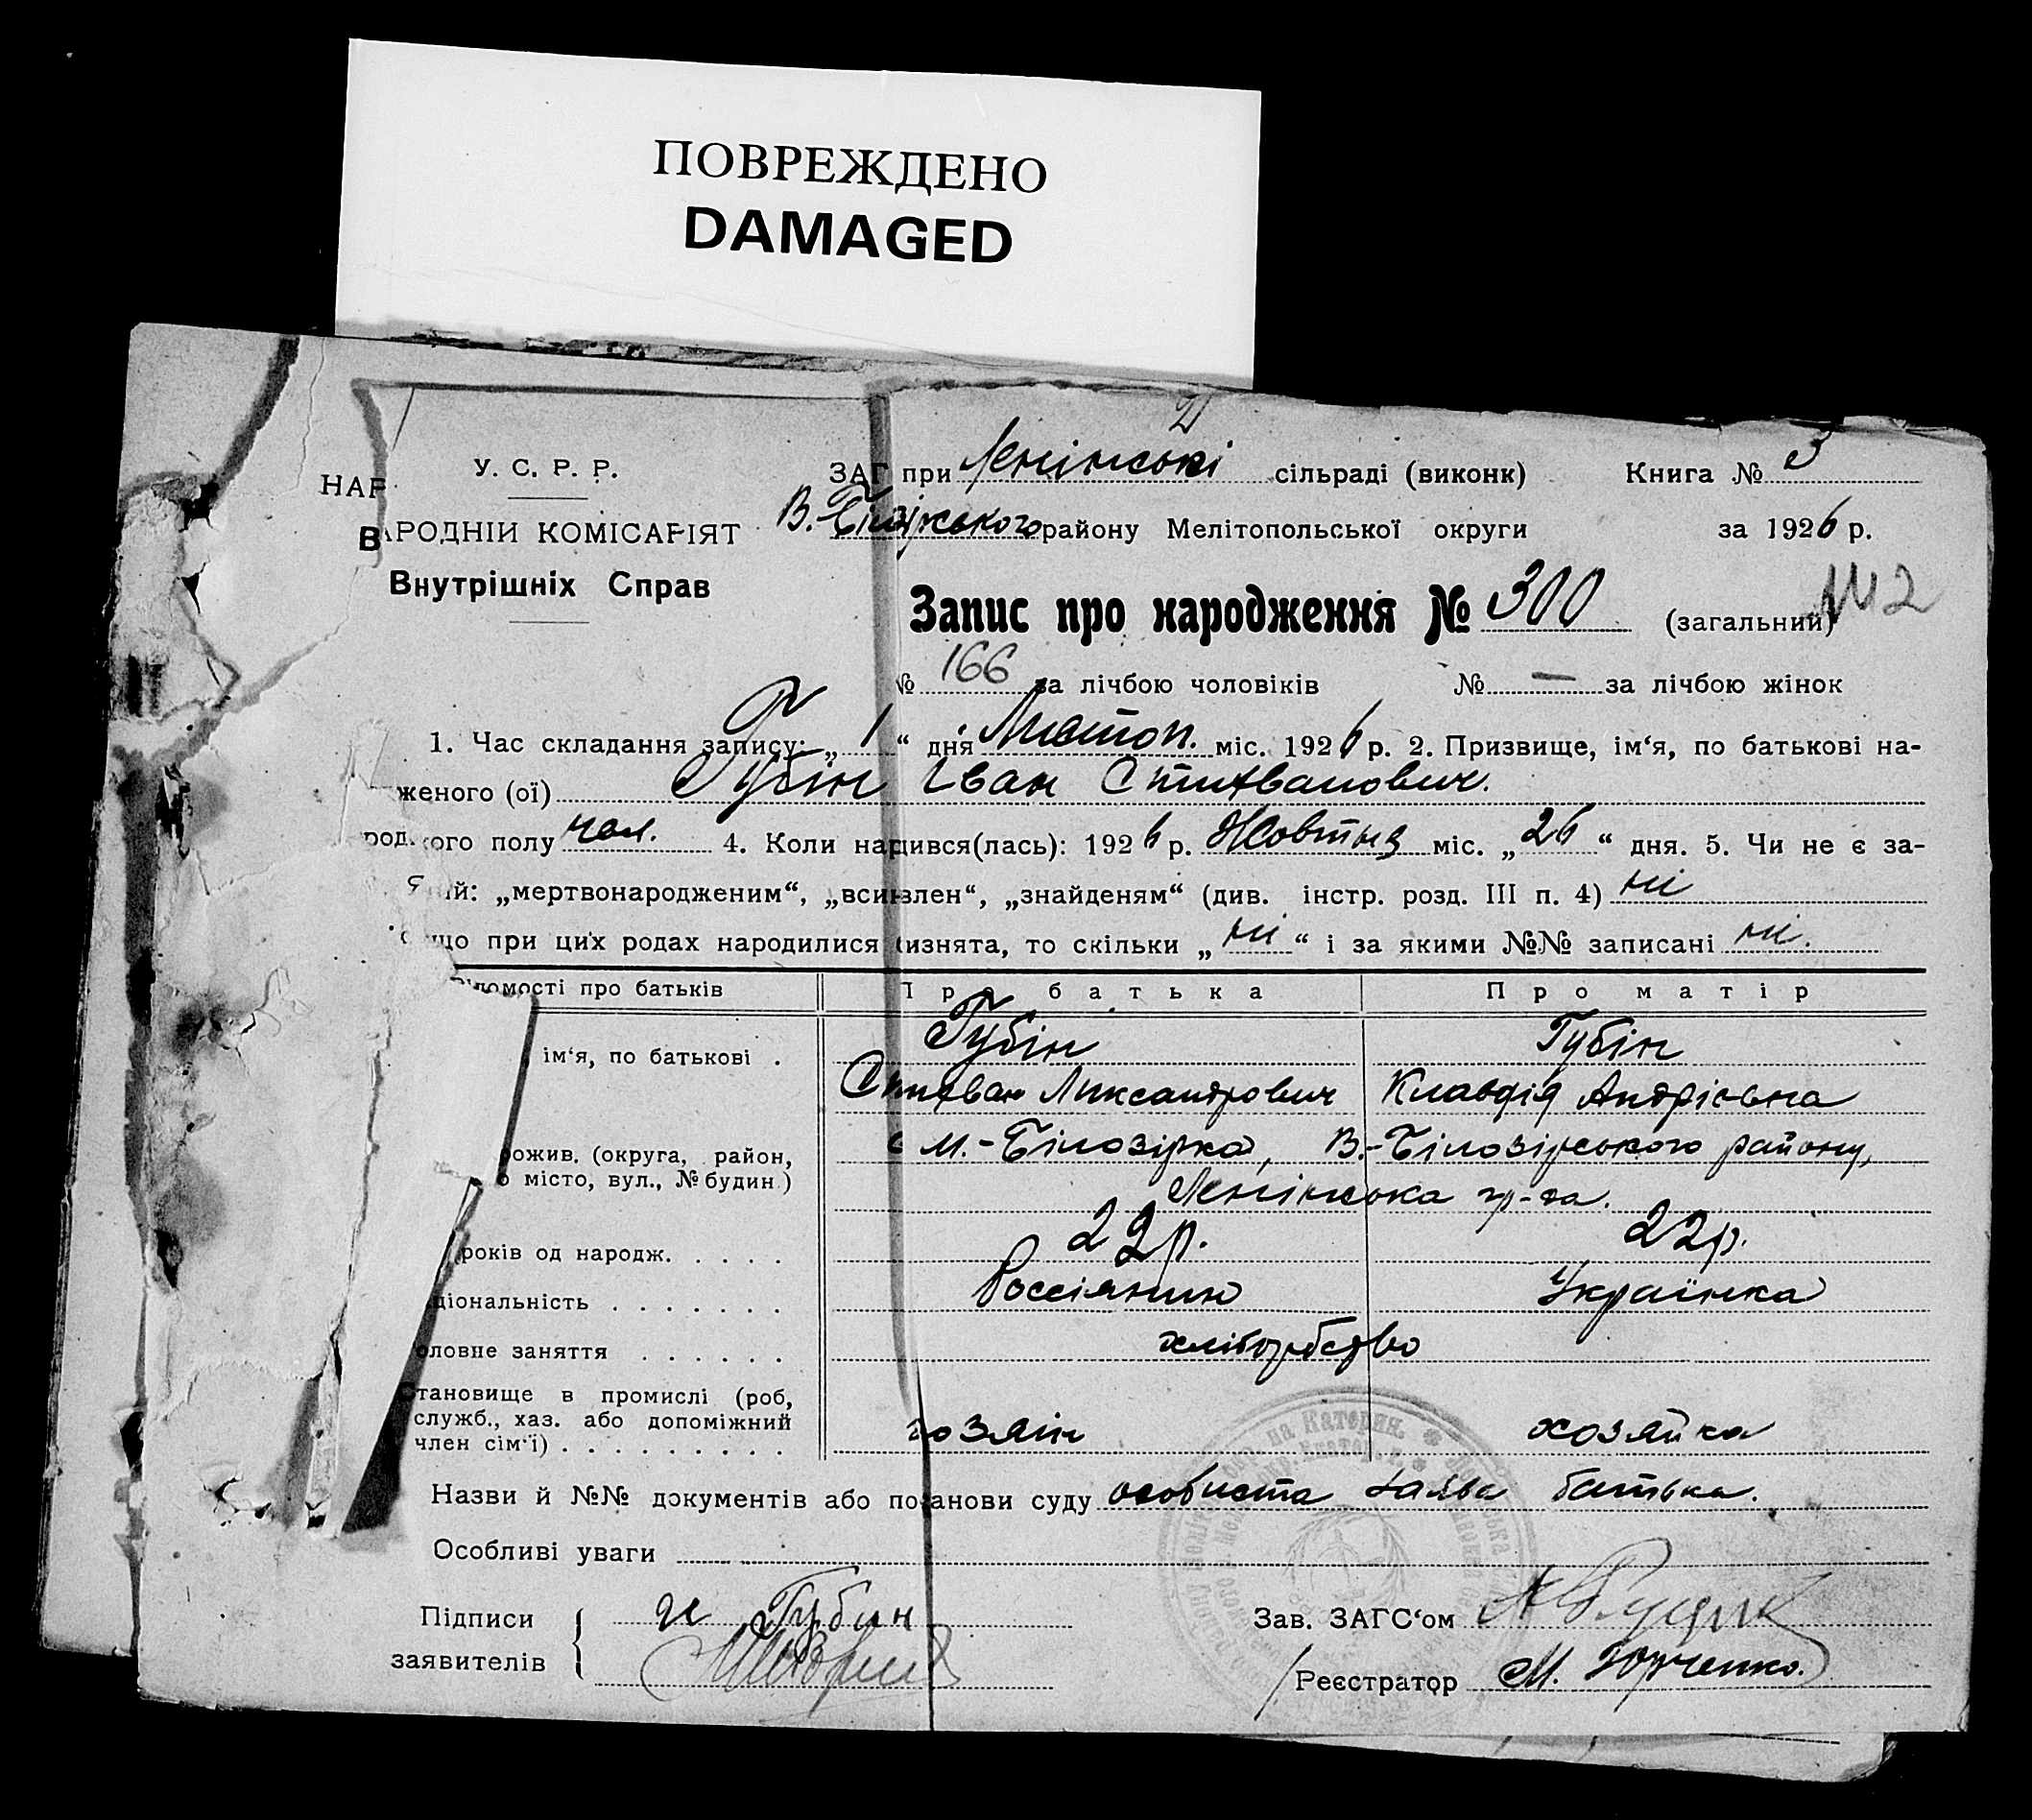 ПОВРЕЖДЕНО
DAMAGED
У. С. Р. Р.
НАР
В АРОДНІЙ КОМІСАРІЯТ
Внутрішніх Справ
ЗАГ при Ленінські сільраді (виконк) Книга № 3
В.-Білозірського району Мелітопольської округи за 1926 р.
Запис про народження № 300 (загальний) 2
№ 166 за лічбою чоловіків № — за лічбою жінок
1. Час складання запису: „ 1 “ дня Листоп. міс. 1926 р. 2. Призвище, ім‘я, по батькові на-
женого (ої) Губін Іван Стихванович.
род. кого полу чол. 4. Коли народився(лась): 1926 р. Жовтня міс. „ 26 “ дня. 5. Чи не є за-
ій: „мертвонародженим“, „всиновлен“, „знайденям“ (див. інстр. розд. III п. 4) ні
що при цих родах народилися близнята, то скільки „ ні “ і за якими №№ записані ні.
Відомості про батьків Про батька Про матір
ім‘я, по батькові . Губін Губін
Стихван Ликсандрович Клавдія Андріївна
рожив. (округа, район, с М.-Білозірка, В.-Білозірського району,
о місто, вул., № будин.) Ленінська гр-да.
років од народж. . . . . 22р. 22р.
ціональність . . . . . . . Россіянин Українка
оловне заняття . . . . . . хліборобство
Становище в промислі (роб,
служб., хаз. або допоміжний хозяїн хозяйка
член сім‘ї) . . . . . . . . .
Назви й №№ документів або постанови суду особиста заява батька.
Особливі уваги
Підписи и Губин Зав. ЗАГС‘ом
заявителів Реєстратор М. Юрченко.